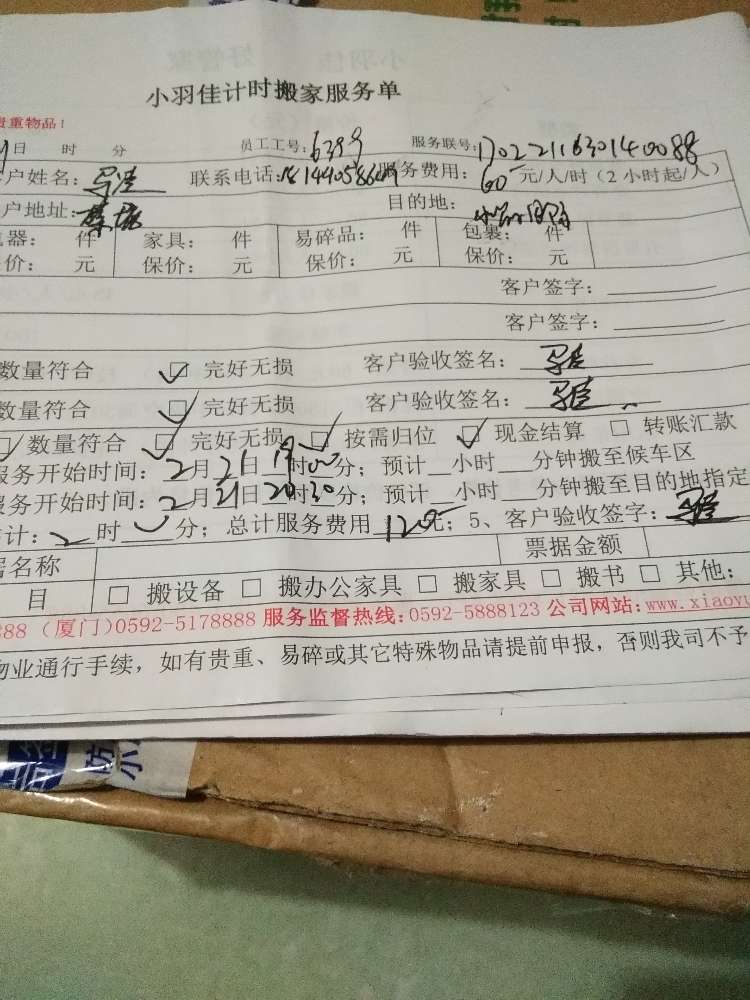 小羽佳计时搬家服务单
贵重物品！
日 时 分 员工工号：6399 服务联号：170221163014 0088
户姓名： 联系电话： 服务费用：60 元/人/时（2小时起/人）
户地址： 目的地：
器： 件 家具： 件 易碎品： 件 包裹： 件
价： 元 保价： 元 保价： 元 保价： 元
客户签字：
客户签字：
数量符合 ☑ 完好无损 客户验收签名：
数量符合 ☑ 完好无损 客户验收签名：
☑ 数量符合 ☑ 完好无损 ☑ 按需归位 ☑ 现金结算 □ 转账汇款
服务开始时间：2月21日19时00分；预计 小时 分钟搬至候车区
服务开始时间：2月21日20时30分；预计 小时 分钟搬至目的地指定
计：2时 分；总计服务费用120元；5、客户验收签字：
名称 票据金额
目 □ 搬设备 □ 搬办公家具 □ 搬家具 □ 搬书 □ 其他：
888（厦门）0592-5178888 服务监督热线：0592-5888123 公司网站：www.xiaoyu
物业通行手续，如有贵重、易碎或其它特殊物品请提前申报，否则我司不予